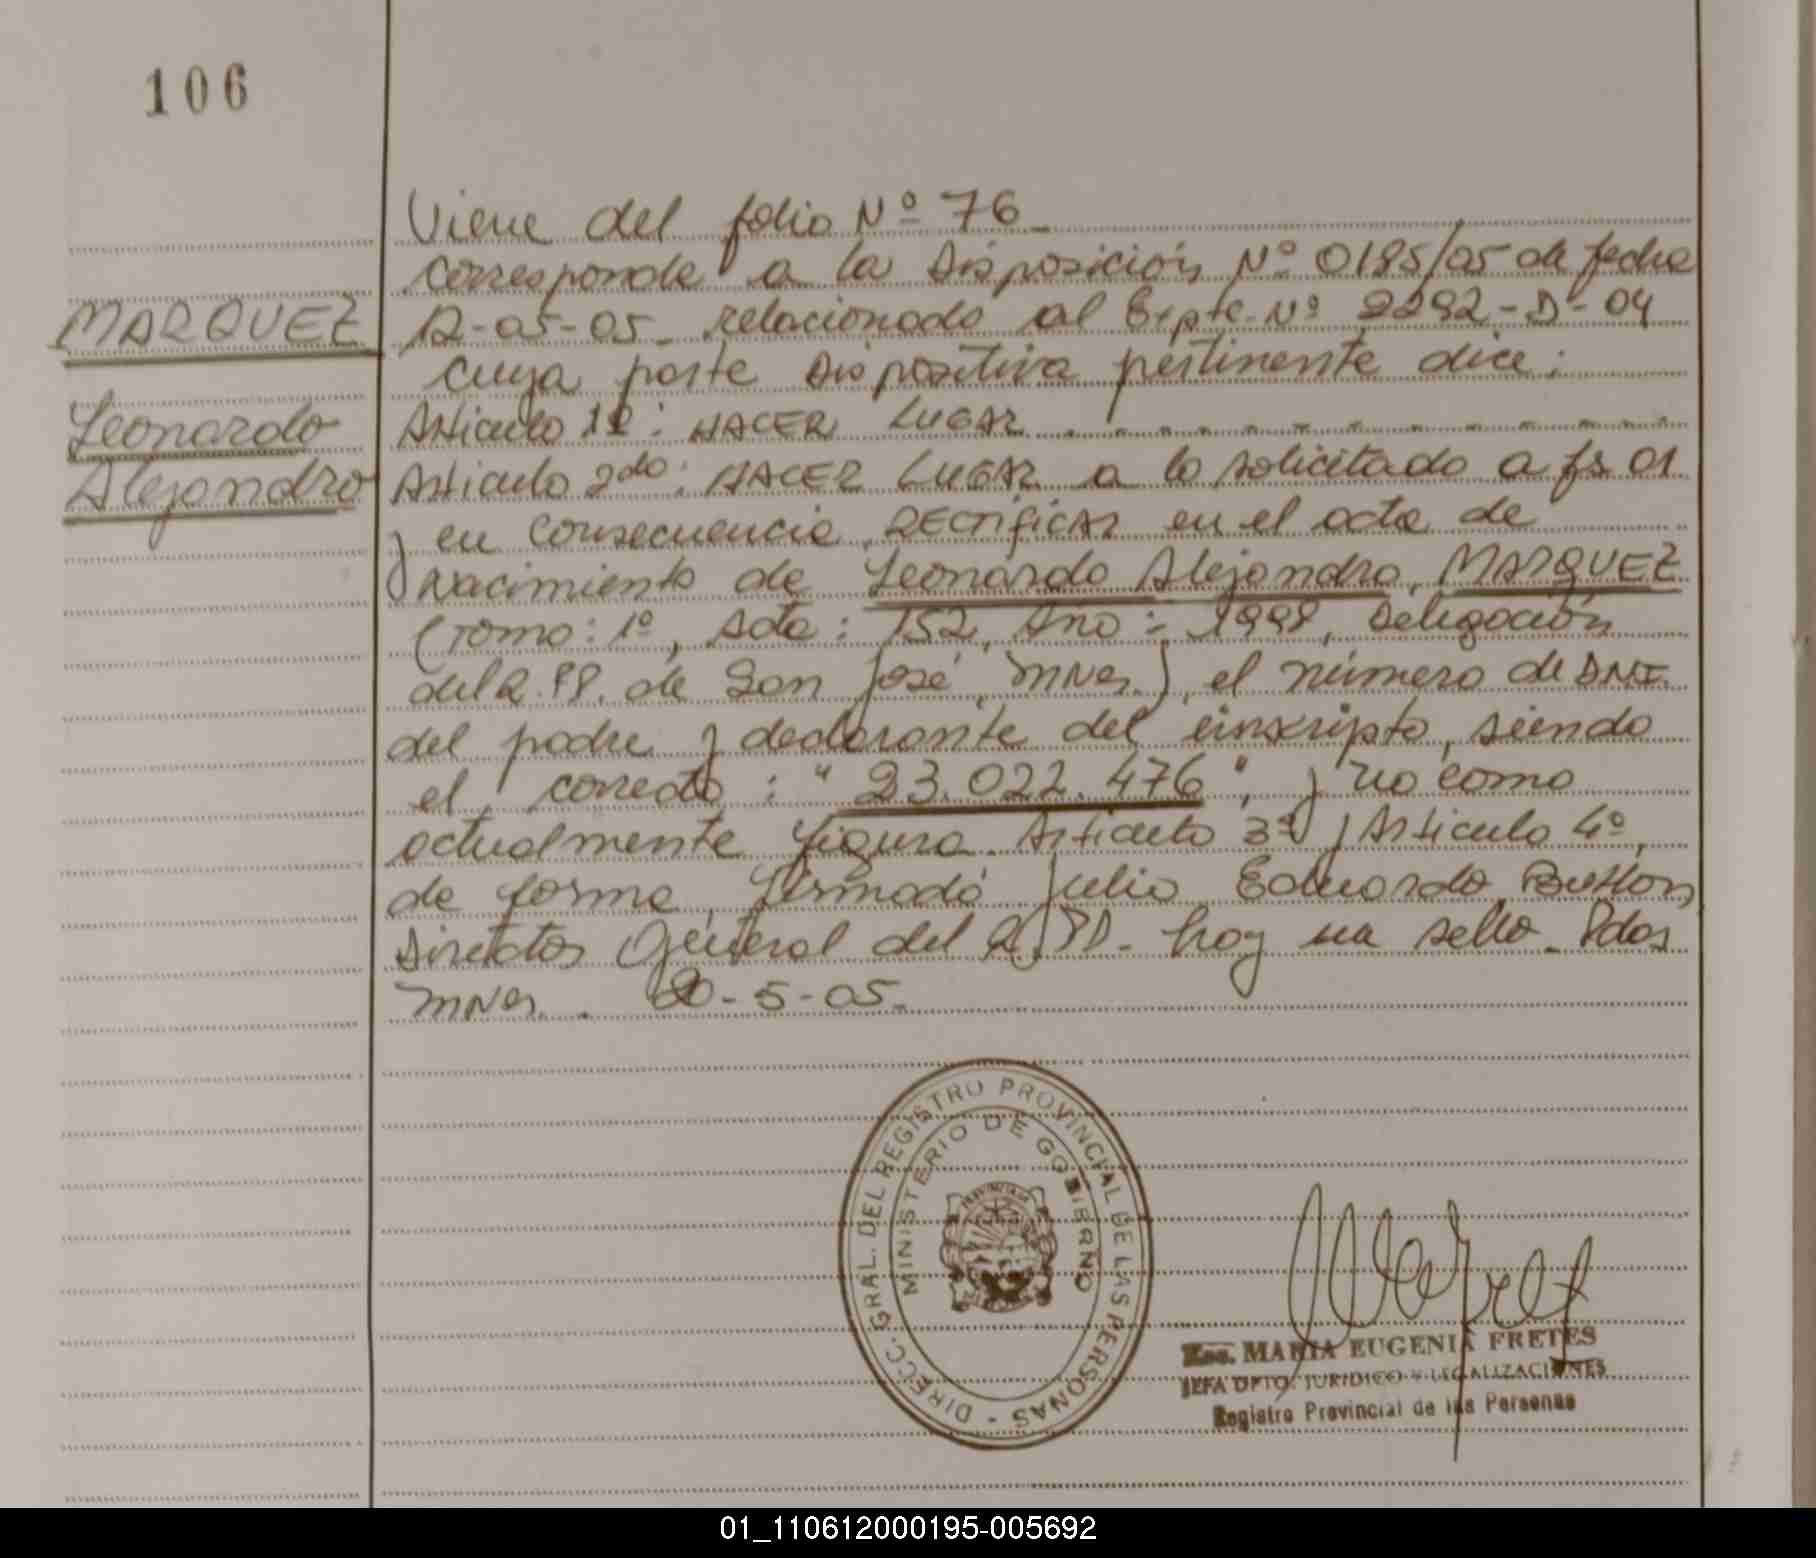 106
Viene del folio Nº 76_
corresponde a la Disposición Nº 0185/05 de fecha
MARQUEZ
12-05-05_ relacionado al Expte. Nº 2292-D-04
cuya parte Dispositiva pertinente dice:
Leonardo
Articulo 1º: HACER LUGAR
Alejandro
Articulo 2do: HACER LUGAR a lo solicitado a fs 01
y en consecuencia RECTIFICAR en el acta de
nacimiento de Leonardo Alejandro MARQUEZ
(Tomo: 1º, Acta: 152, Año: 1998, Delegación
del R.PP. de San José, Mnes.), el número de DNI
del padre y declarante del inscripto, siendo
el correcto: "23.022.476", y no como
actualmente figura. Articulo 3º y Articulo 4º,
de forma, firmado Julio Eduardo
Director General del R.PP. hay un sello. Pdas
Mnes. 20-5-05.
DIRECC. GRAL. DEL REGISTRO PROVINCIAL DE LAS PERSONAS -
MINISTERIO DE GOBIERNO
Esc. MARIA EUGENIA FRETES
JEFA DPTO. JURIDICO Y LEGALIZACIONES
Registro Provincial de las Personas
01_110612000195-005692